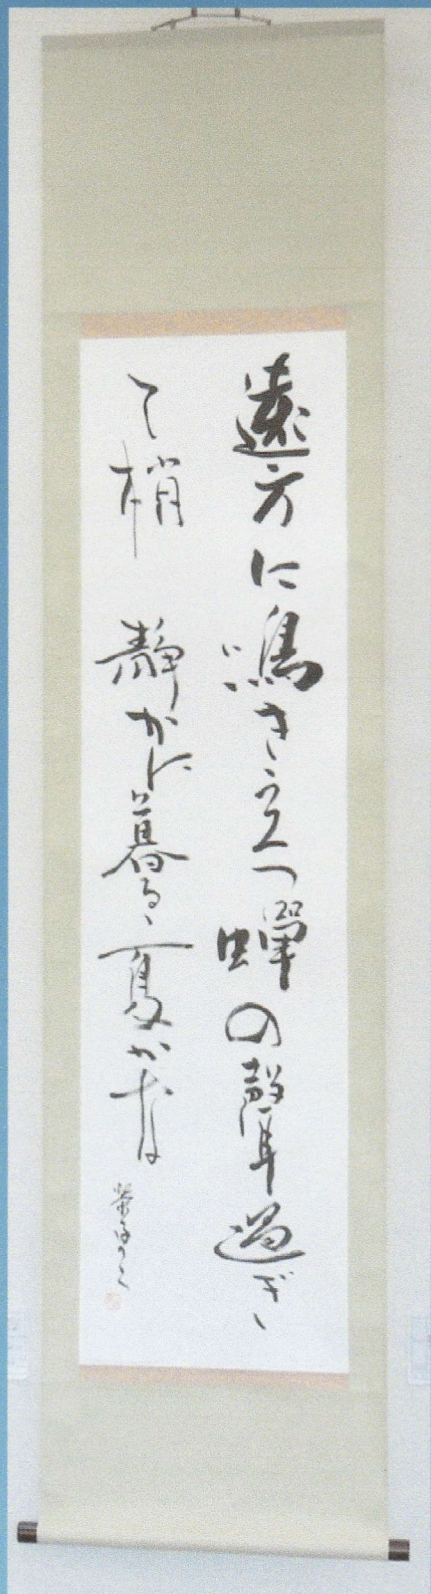 遠方に鳴き立つ蟬の聲過ぎ
て梢　静かに暮るゝ夏かな